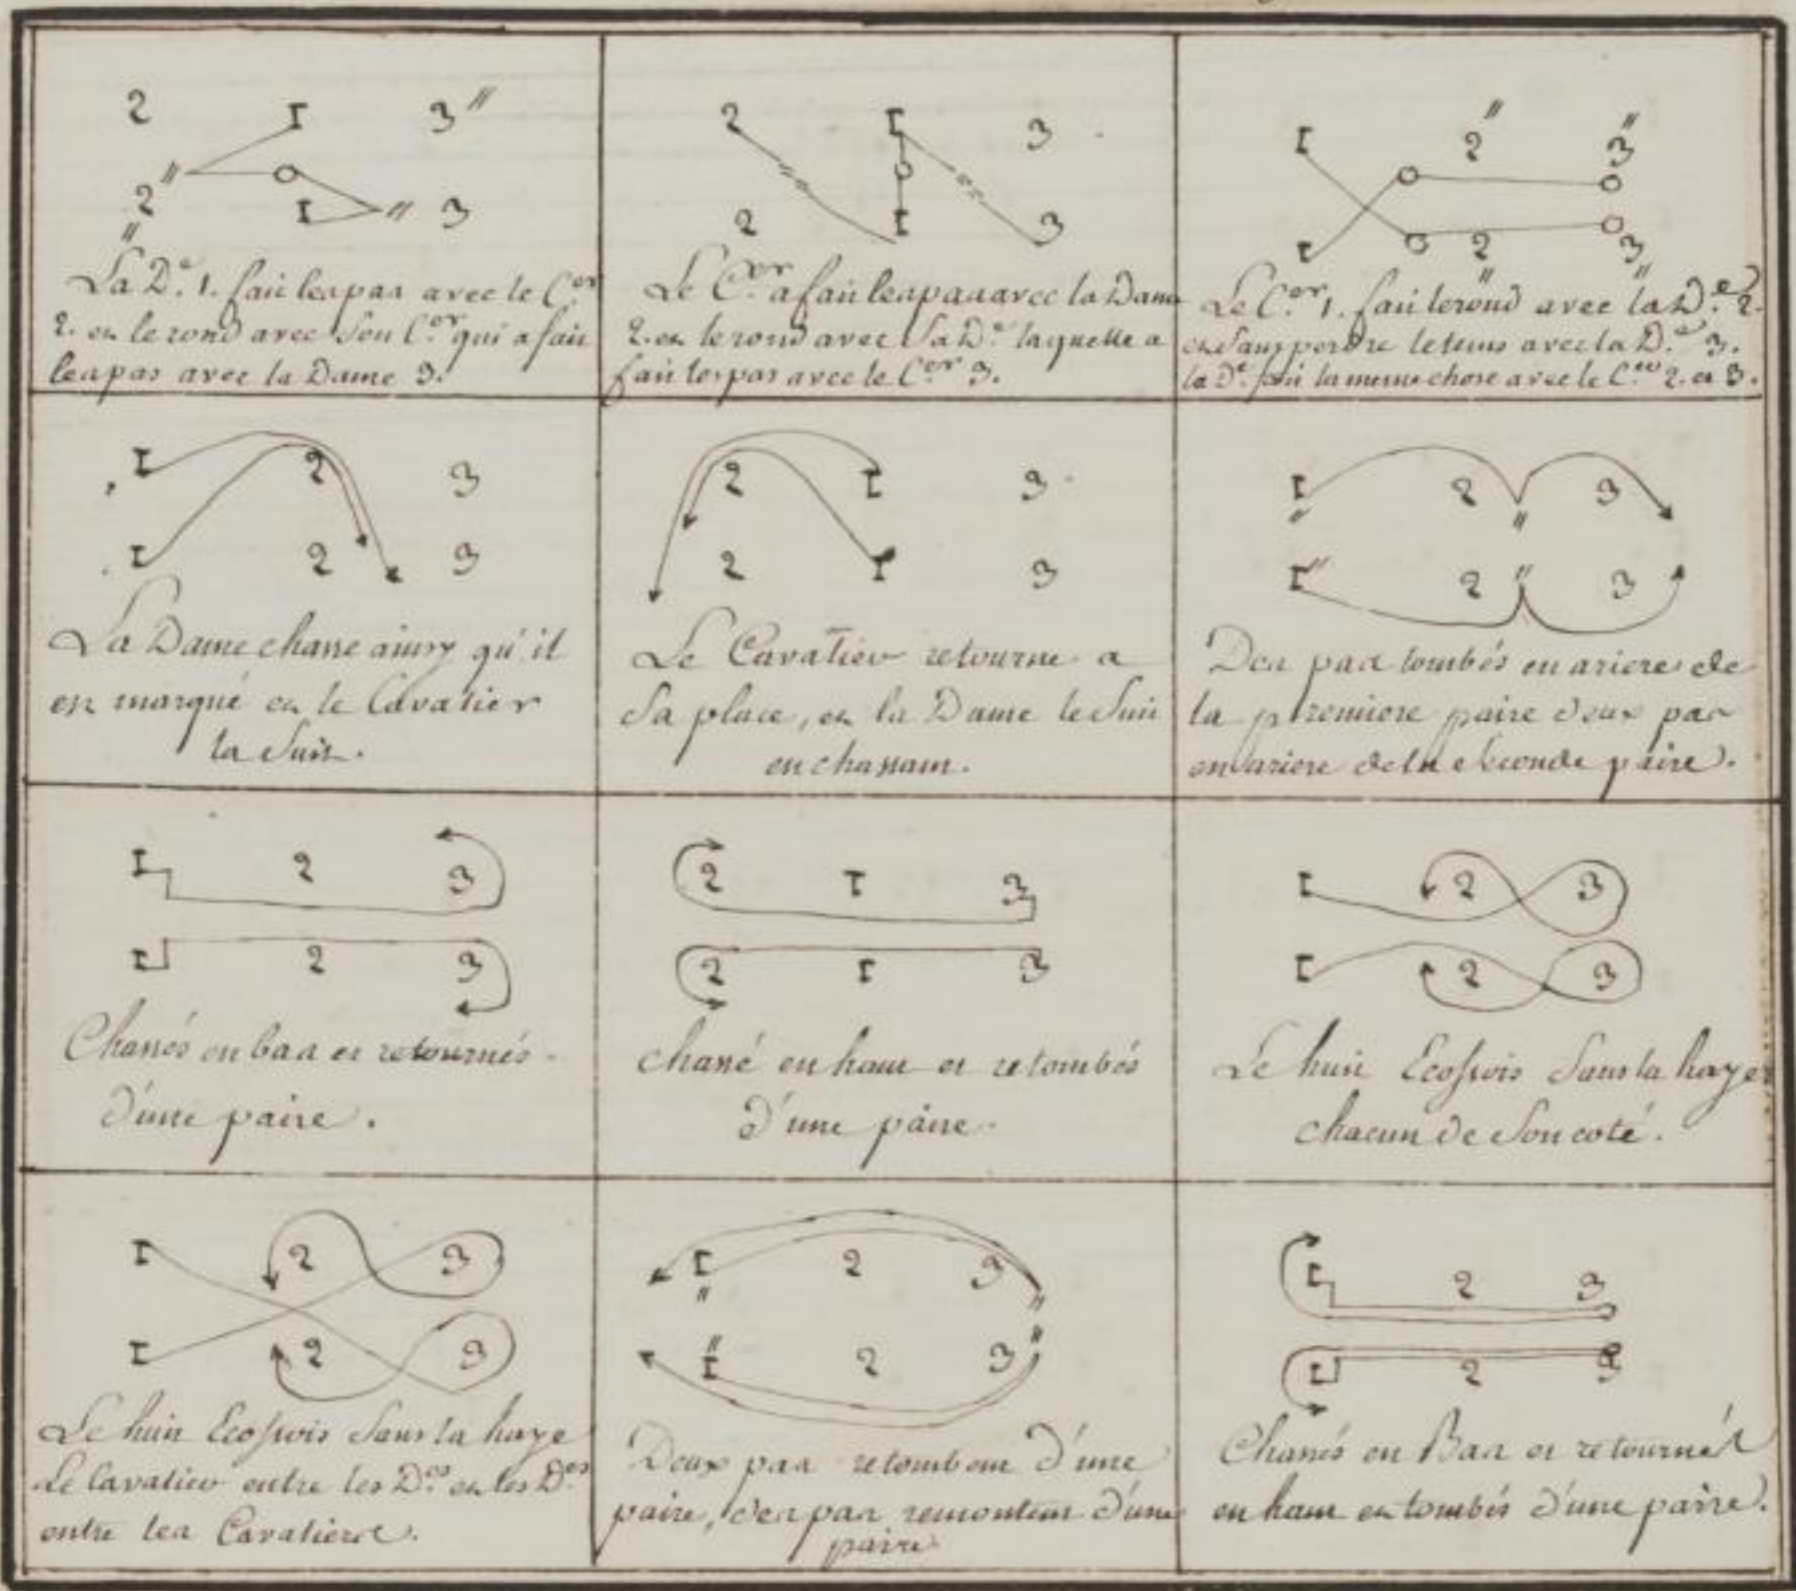 2 I 3"
2" I " 3
"
La D.e 1. fait les pas avec le C.er
2. et le rond avec son C.er qui a fait
les pas avec la Dame 3.
2 I 3
2 I 3
Le C.er a fait les pas avec la Dame
2. et le rond avec sa D.e laquelle a
fait les pas avec le C.er 3.
I 2" 3"
I 2" 3"
Le C.er 1. fait le rond avec la D.e 2.
et sans perdre le tems avec la D.e 3.
la D.e fait la meme chose avec le C.er 2. et 3.
I 2 3
I 2 3
La Dame chasse ainsy qu'il
est marqué et le Cavalier
la suit.
2 I 3
2 I 3
Le Cavalier retourne a
sa place, et la Dame le suit
en chassant.
I 2 3
" "
I" 2 " 3
Des pas tombés en ariere de
la premiere paire deux pas
en ariere de la seconde paire.
I 2 3
I 2 3
Chassés en bas et retournés
d'une paire.
2 I 3
2 I 3
chassé en haut et retombés
d'une paire.
I 2 3
I 2 3
Le huit Ecossois sans la haye
chacun de son coté.
I 2 3
I 2 3
Le huit Ecossois sans la haye
Le Cavalier entre les D.es et les D.es
entre les Cavaliers.
I 2 3
" "
" "
I 2 3
Deux pas retombent d'une
paire, des pas remontent d'une
paire
I 2 3
I 2 3
Chassés en Bas et retournés
en haut et tombés d'une paire.